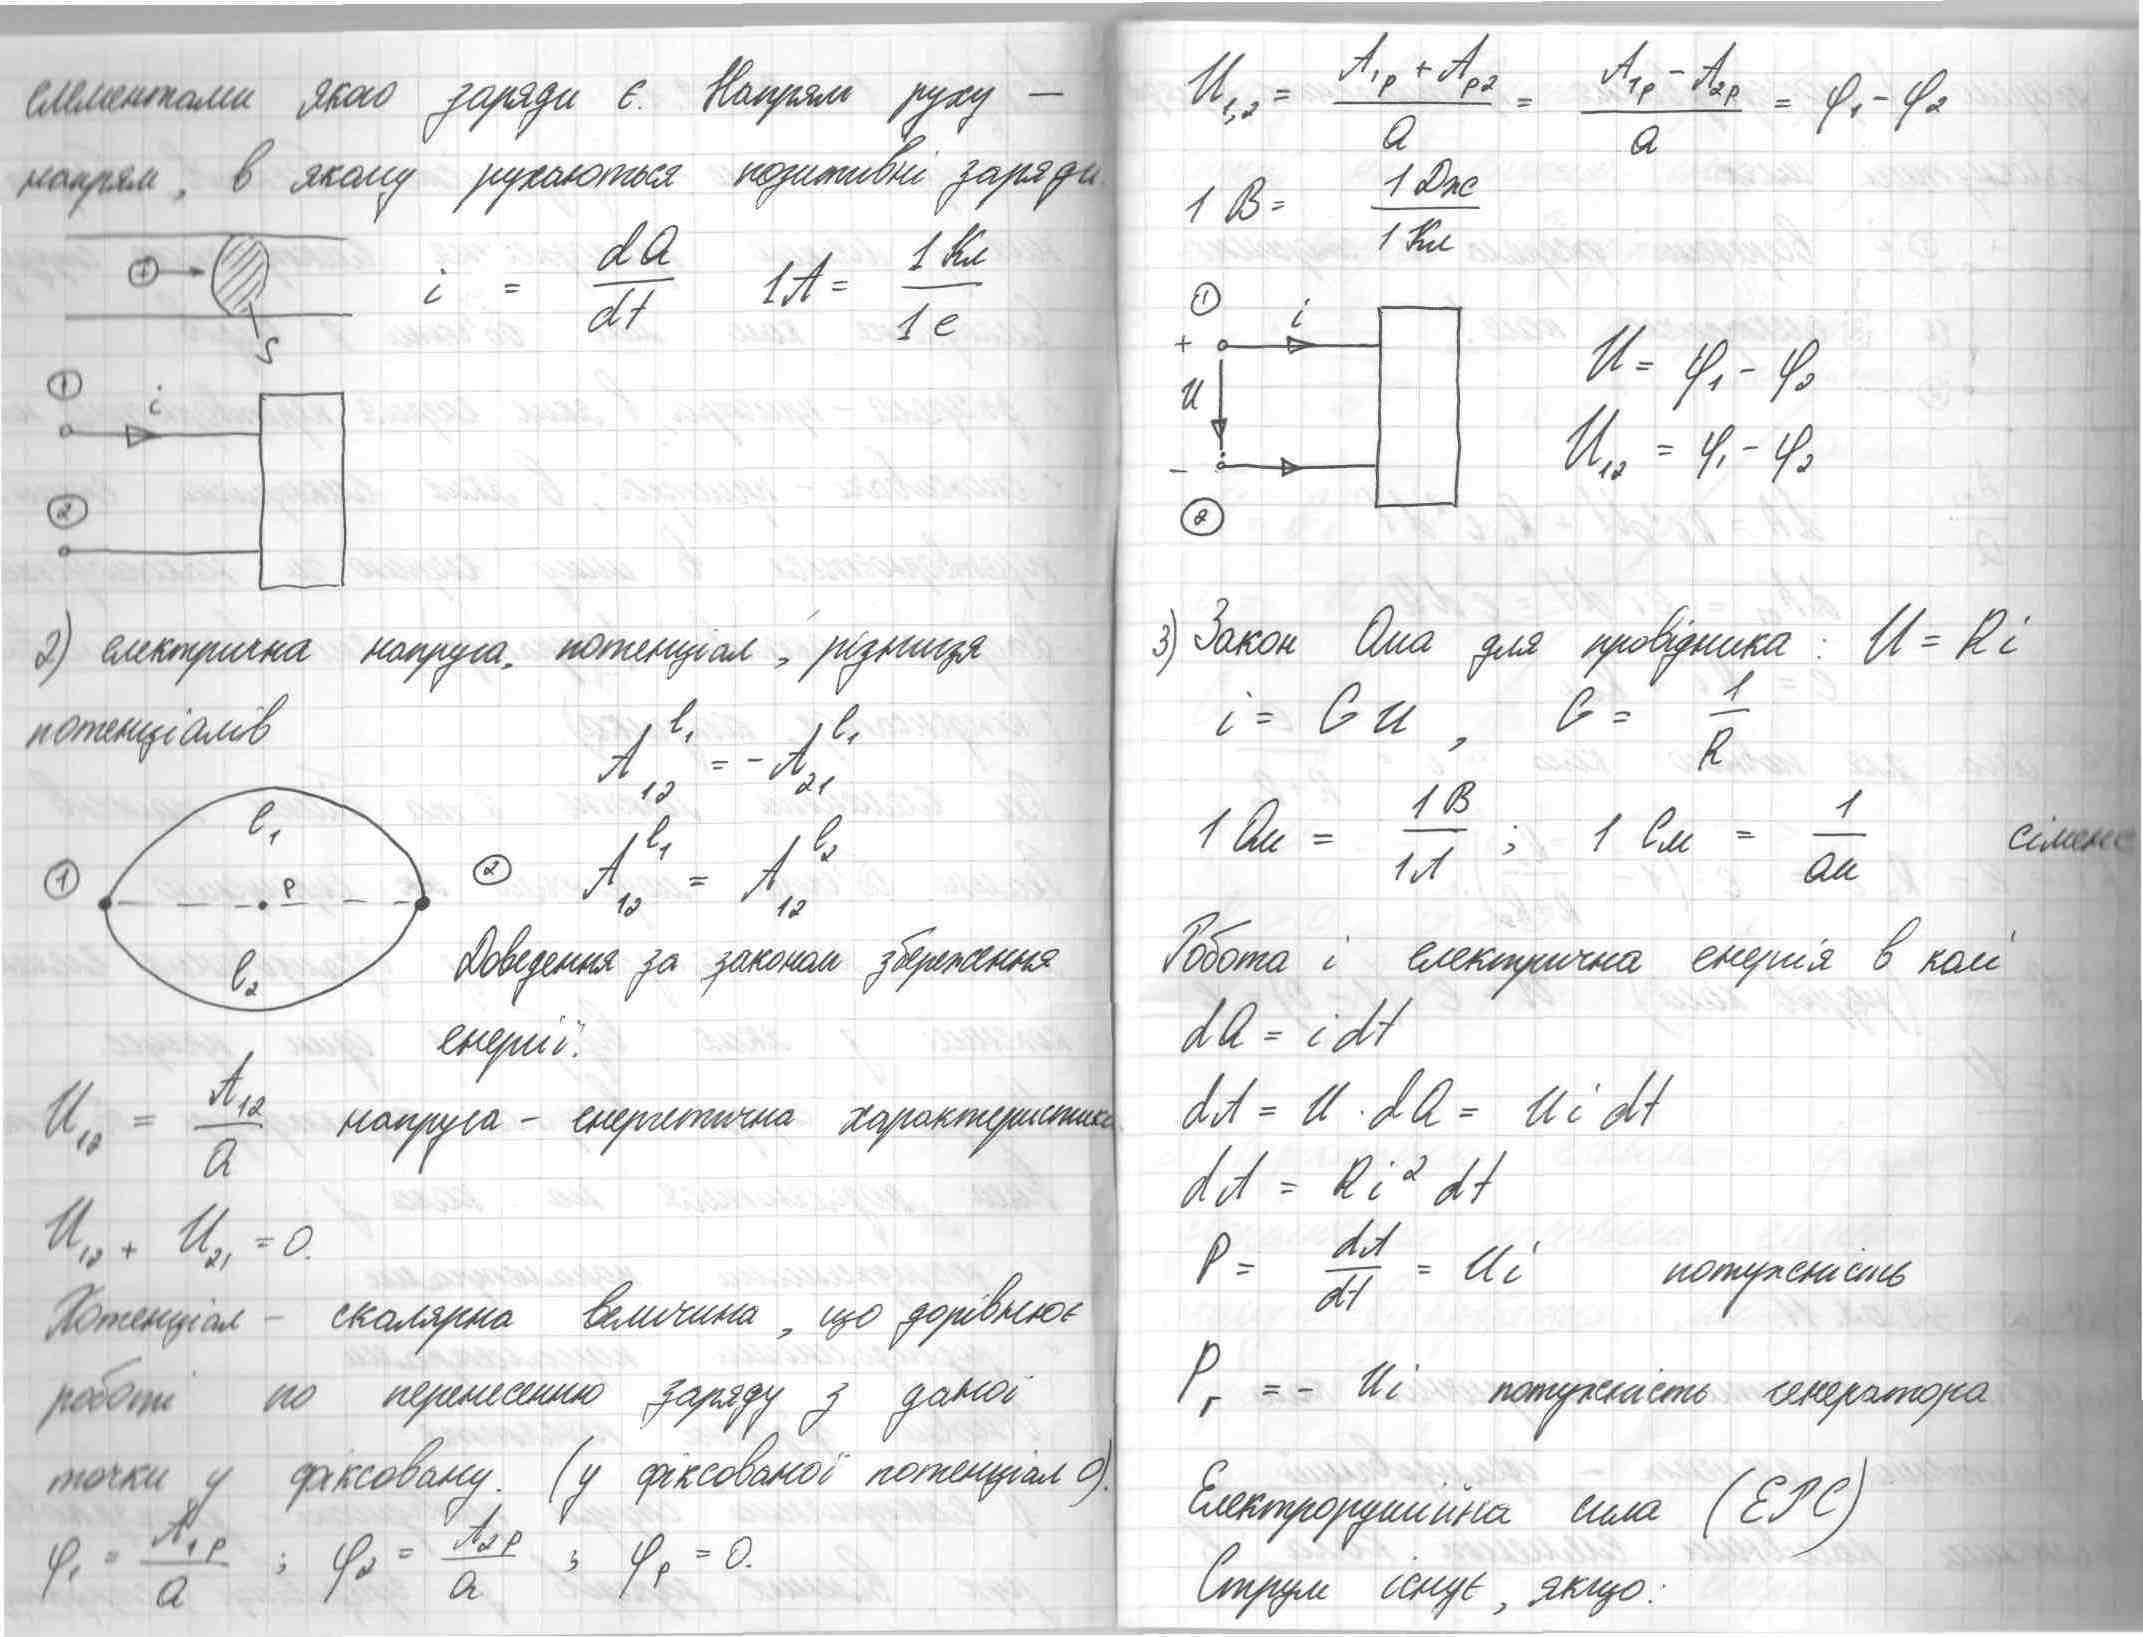 елементами якао заряди є. Напрям руху —
напрям, в якому рухаються позитивні заряди.
i = dQ/dt 1A = 1 Кл/1 с
S
① i
②
2) електрична напруга, потенціал, різниця
потенціалів
A₁₂^l₁ = -A₂₁^l₁
l₁
① P ② A₁₂^l₁ = A₁₂^l₂
l₂
Доведення за законом збереження
енергії.
U₁₂ = A₁₂/Q напруга - енергетична характеристика
U₁₂ + U₂₁ = 0.
Потенціал - скалярна величина, що дорівнює
роботі по перенесенню заряду з даної
точки у фіксовану. (у фіксованої потенціал 0).
φ₁ = A₁P/Q ; φ₂ = A₂P/Q ; φP = 0.
U₁,₂ = (A₁P + AP₂)/Q = (A₁P - A₂P)/Q = φ₁ - φ₂
1 В = 1 Дж/1 Кл
① i
+
U U = φ₁ - φ₂
U₁₂ = φ₁ - φ₂
-
②
3) Закон Ома для провідника : U = Ri
i = Gu , G = 1/R
1 Ом = 1В/1А ; 1 См = 1/Ом сіменс
Робота і електрична енергія в колі
dQ = i dt
dA = U · dQ = Ui dt
dA = Ri² dt
P = dA/dt = Ui потужність
Pг = - Ui потужність генератора
Електрорушійна сила (ЕРС)
Струм існує, якщо: